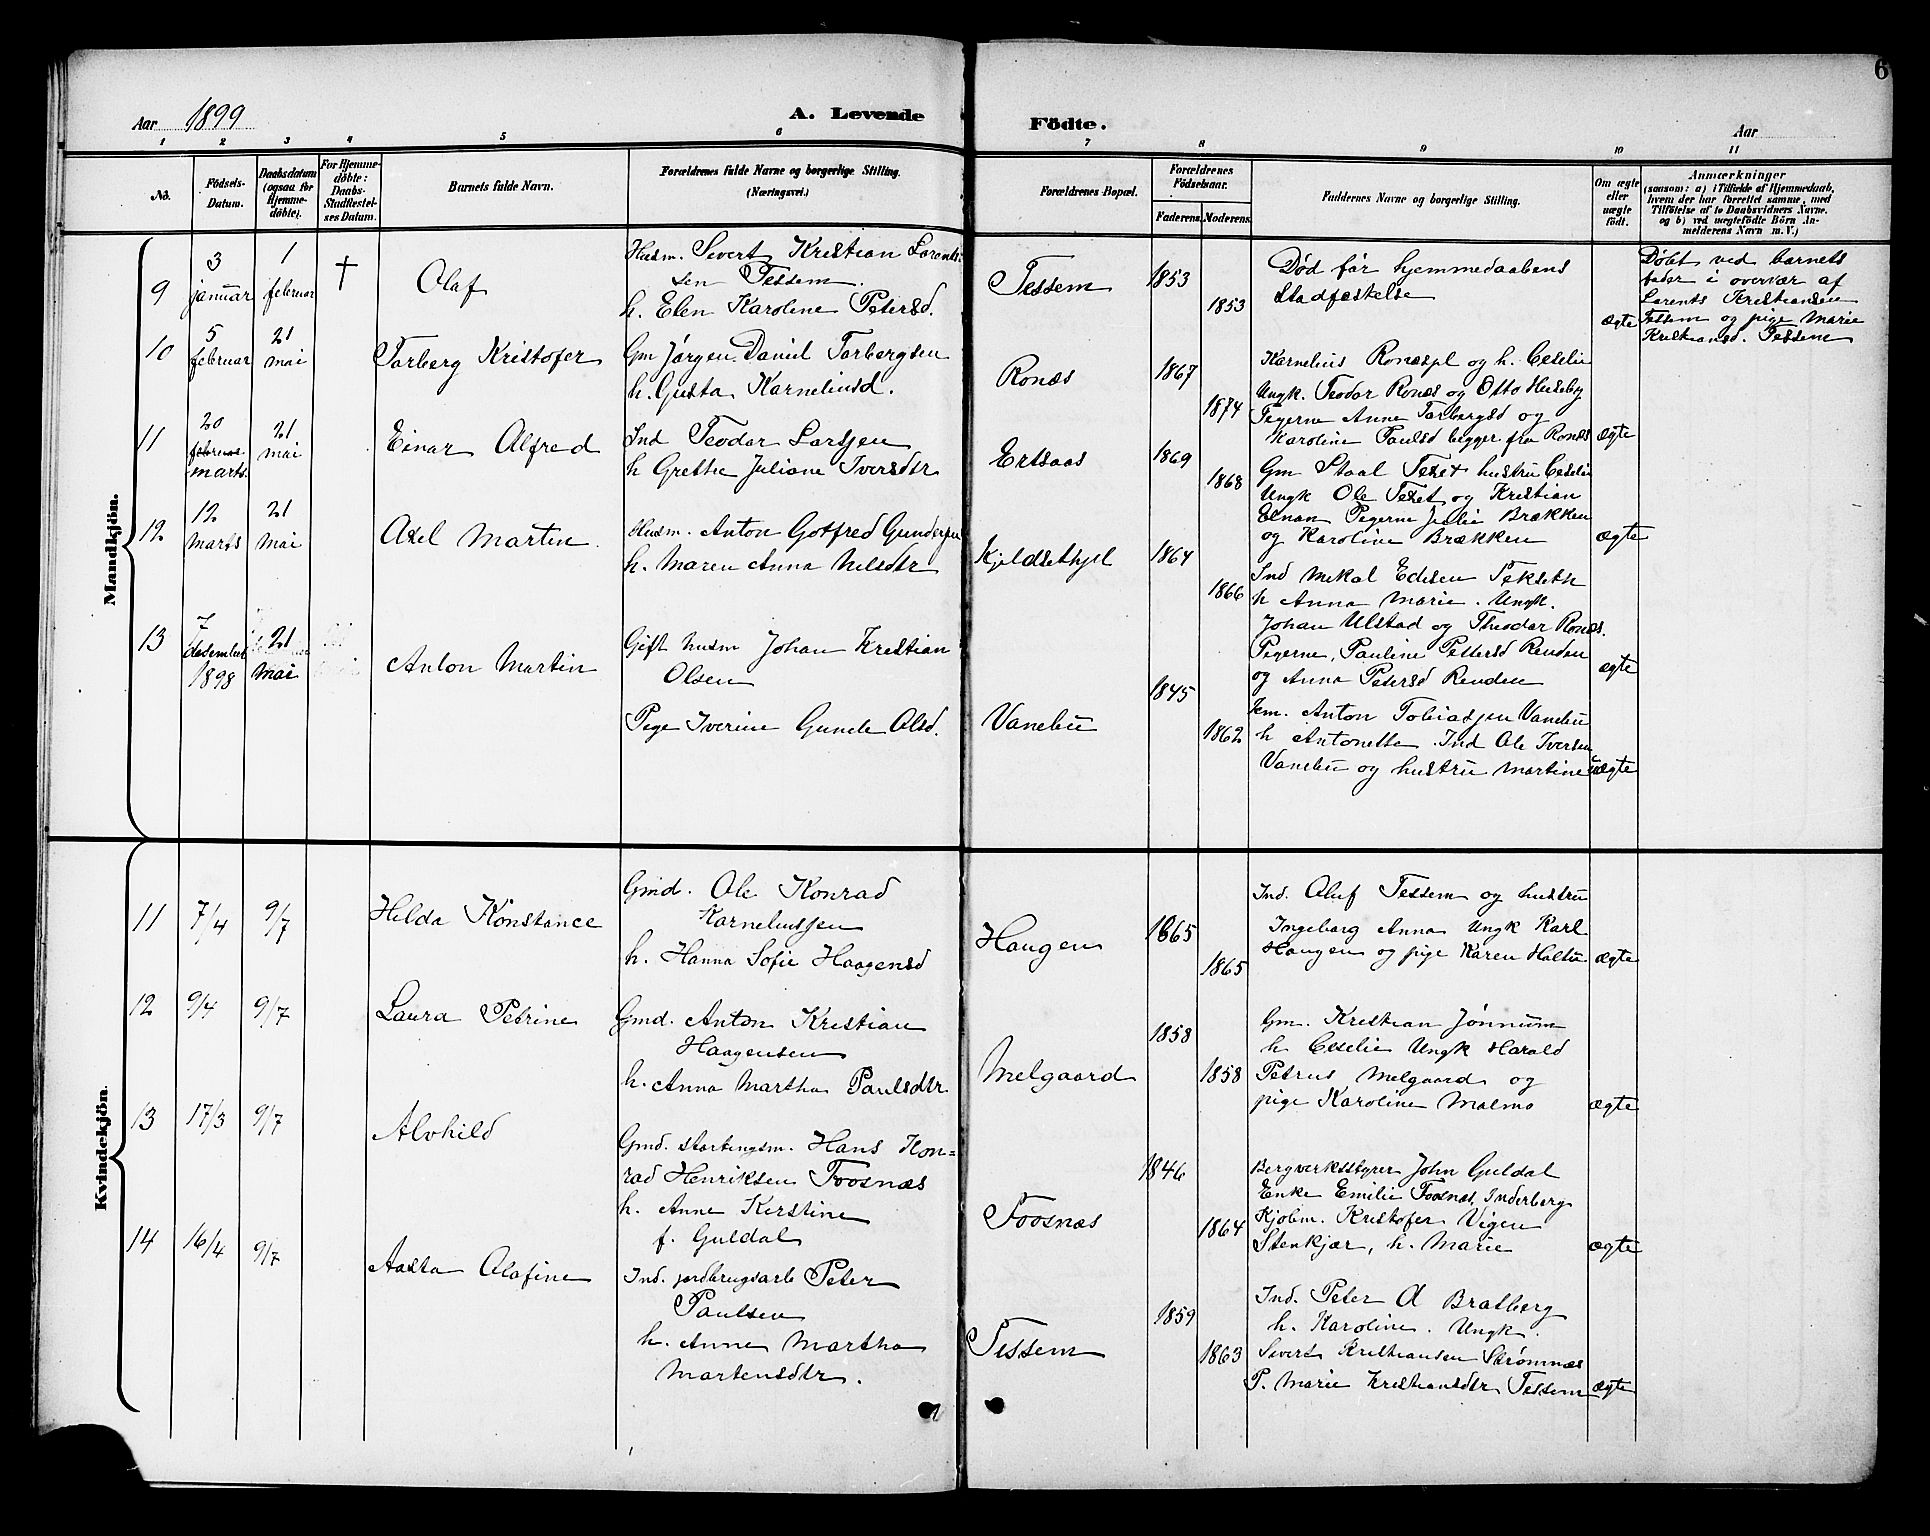 6
Aar 1899
A. Levende
Födte.
Aar
1 2 3 4 5 6 7 8 9 10 11
No.
Födsels-Datum.
Daabsdatum (ogsaa for Hjemmedöbte).
For Hjemmedöbte: Daabs-Stadfestelses Datum.
Barnets fulde Navn.
Forældrenes fulde Navne og borgerlige Stilling.
(Næringsvei.)
Forældrenes Bopæl.
Forældrenes Födselsaar.
Faderens. Moderens.
Faddernes Navne og borgerlige Stilling.
Om ægte eller uægte födt.
Anmærkninger
(saasom: a) i Tilfælde af Hjemmedaab,
hvem der har forrettet samme, med
Tilföielse af to Daabsvidners Navne.
og b) ved uægtefödte Börn Anmelderens Navn m. V.)
Mandkjön.
9
3 januar
1 februar
†
Olaf
Husm. Sivert Kristian Lorentssen Tessem.
h. Elen Karoline Petersd.
Tessem
1853
1853
Død før hjemmedaabens
Stadfæstelse
ægte
Døbt ved barnets
fader i overvær af
Lorents Kristiansen
Tessem og pige Marie
Kristiansd. Tessem
10
5 februar
21 mai
Torberg Kristofer
Gm Jørgen Daniel Torbergsen
h. Gusta Karneliusd.
Ronæs
1867
1874
Karnelius Ronæspl og h. Ceselie
Ungk. Teodor Ronæs og Otto Huseby
Pigerne Anne Torbergsd og
Karoline Paulsd begger fra Ronæs
ægte
11
20 februar marts.
21 mai
Einar Alfred
Ind Teodor Larssen
h Grethe Juliane Iversdtr
Ertsaas
1869
1868
Gm Staal Texet hustru Ceselie
Ungk Ole Texet og Kristian
Pigerne Julie Brækken
og Karoline Brækken
ægte
12
12 marts
21 mai
Axel Martin
Husm. Anton Gotfred Gundersen
h. Maren Anna Nelsdtr
Kjeldsethpl
1864
1866
Ind Mekal Edisen Tekseth
h Anna Marie. Ungk.
Johan Ulstad og Theodor Ronæs.
Pigerne, Pauline Pettersd Renden
og Anna Petersd Renden
ægte
13
7 desember 1898
21 mai
Anton Martin
Gift husm Johan Kristian
Olsen
Pige Iverine Gunele Olsd.
Vanebu
1845
1862
Em. Anton Tobiassen Vanebu
h Antonette. Ind Ole Iversen
Vanebu og hustru Martine
uægte
Kvindekjön.
11
7/4
9/7
Hilda Konstance
Gmd. Ole Konrad
Karneliussen
h. Hanna Sofie Haagensd
Haugen
1865
1865
Ind. Oluf Tessem og hustru
Ingeborg Anna Ungk Karl
Haugen og pige Karen Holtu
ægte
12
9/4
9/7
Laura Petrine
Gmd. Anton Kristian
Haagensen
h. Anna Martha Paulsdtr
Melgaard
1858
1858
Gm. Kristian Jønnum
h Ceselie Ungk Harald
Petrus Melgaard og
pige Karoline Malmo
ægte
13
17/3
9/7
Alvhild
Gmd. stortingsm. Hans Kon=
rad Henriksen Foosnæs
h. Anne Kirstine
f. Guldal
Foosnæs
1846
1864
Bergverksstyrer John Guldal
Enke Emilie Foosnæs, Inderberg
Kjøbm. Kristofer Vigen
Stenkjær, h. Marie
ægte
14
16/4
9/7
Aasta Olafine
Ind. jordbrugsarb Peter
Paulsen
h. Anne Martha
Martensdtr.
Tessem
1859
1863
Ind. Peter A Bratberg
h. Karoline. Ungk.
Sivert Kristiansen Strømnæs
P. Marie Kristiansdtr Tessem
ægte